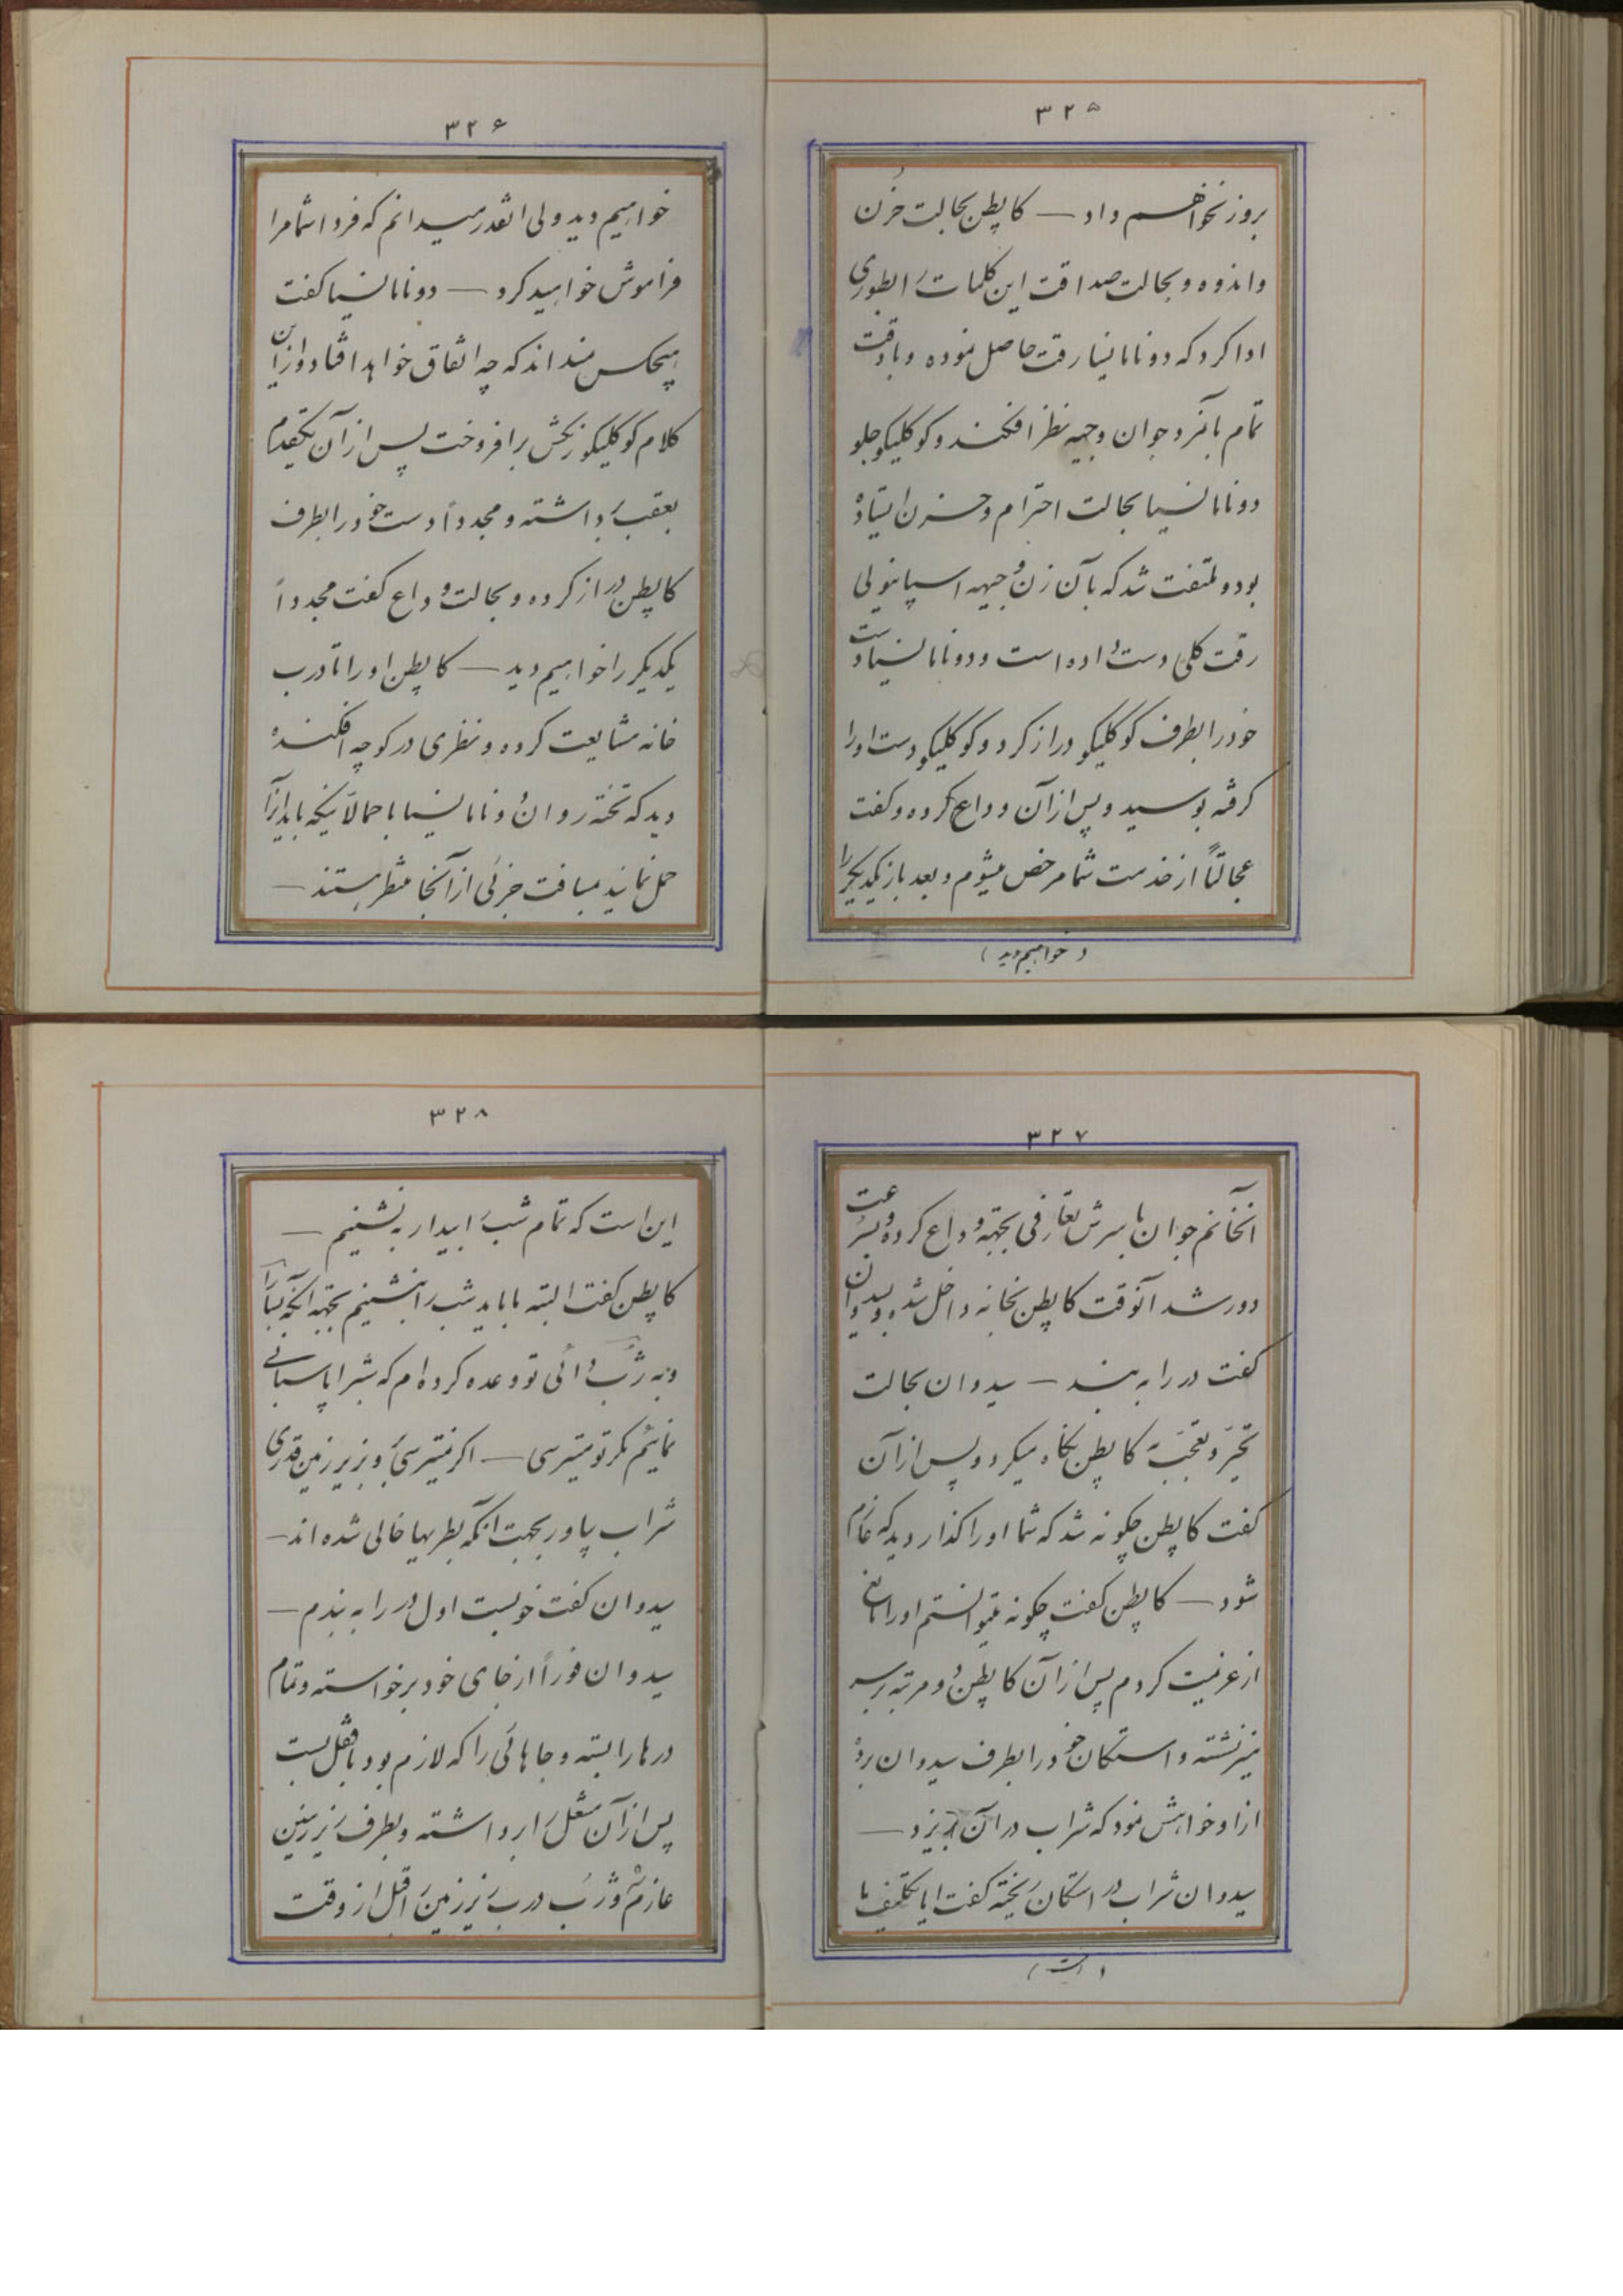 ۳۲۵
بروز نخواهم داد — کاپطن بحالت حزن
و اندوه و بحالت صداقت این کلمات را بطوری
ادا کرد که دونامانسیا رقت حاصل نموده و با دقت
تمام بآنمرد جوان وجیه نظر افکند و کوکلیکو جلو
دونامانسیا بحالت احترام و حزن ایستاده
بود و ملتفت شد که بآن زن وجیهه اسپانیولی
رقت کلی دست داده است و دونامانسیا دست
خود را بطرف کوکلیکو دراز کرد و کوکلیکو دست او را
گرفته بوسید و پس از آن وداع کرده و گفت
عجالتاً از خدمت شما مرخص میشوم و بعد باز یکدیگر را
(خواهیم دید)
۳۲۶
خواهیم دید ولی اینقدر میدانم که فردا شما مرا
فراموش خواهید کرد — دونامانسیا گفت
هیچکس نمیداند که چه اتفاق خواهد افتاد و از این
کلام کوکلیکو رنگش برافروخت پس از آن یکقدم
بعقب برداشته و مجدداً دست خود را بطرف
کاپطن دراز کرده و بحالت وداع گفت مجدداً
یکدیگر را خواهیم دید — کاپطن او را تا درب
خانه مشایعت کرده و نظری در کوچه افکنده
دید که تخته روان دونامانسیا با حمالانیکه باید آنرا
حمل نمایند بمسافت جزئی از آنجا منتظر هستند —
۳۲۷
آنخانم جوان با سرش تعارفی بجهة وداع کرده و بسرعت
دور شد آنوقت کاپطن بخانه داخل شده و بسیدوان
گفت در را به بند — سیدوان بحالت
تحیر و تعجب به کاپطن نگاه میکرد و پس از آن
گفت کاپطن چگونه شد که شما او را گذاردید که عازم
شود — کاپطن گفت چگونه میتوانستم او را مانع
از عزیمت کردم پس از آن کاپطن دو مرتبه بر سر
میز نشسته و استکان خود را بطرف سیدوان برده
از او خواهش نمود که شراب در آن بریزد —
سیدوان شراب در استکان ریخته گفت آیا تکلیف ما
(این است)
۳۲۸
این است که تمام شب را بیدار به نشینیم —
کاپطن گفت البته ما باید شب را بنشینیم بجهة آنکه
و به دائی تو وعده کرده ام که شب را پاسبانی
نمائیم مگر تو میترسی — اگر نمیترسی برو بزیر زمین قدری
شراب بیاور بجهت آنکه بطریها خالی شده اند —
سیدوان گفت خوبست اول در را به بندم —
سیدوان فوراً از جای خود برخواسته و تمام
درها را بسته و جاهائی را که لازم بود با قفل بست
پس از آن مشعل را برداشته و بطرف زیرزمین
عازم شد و درب زیرزمین را قبل از وقت